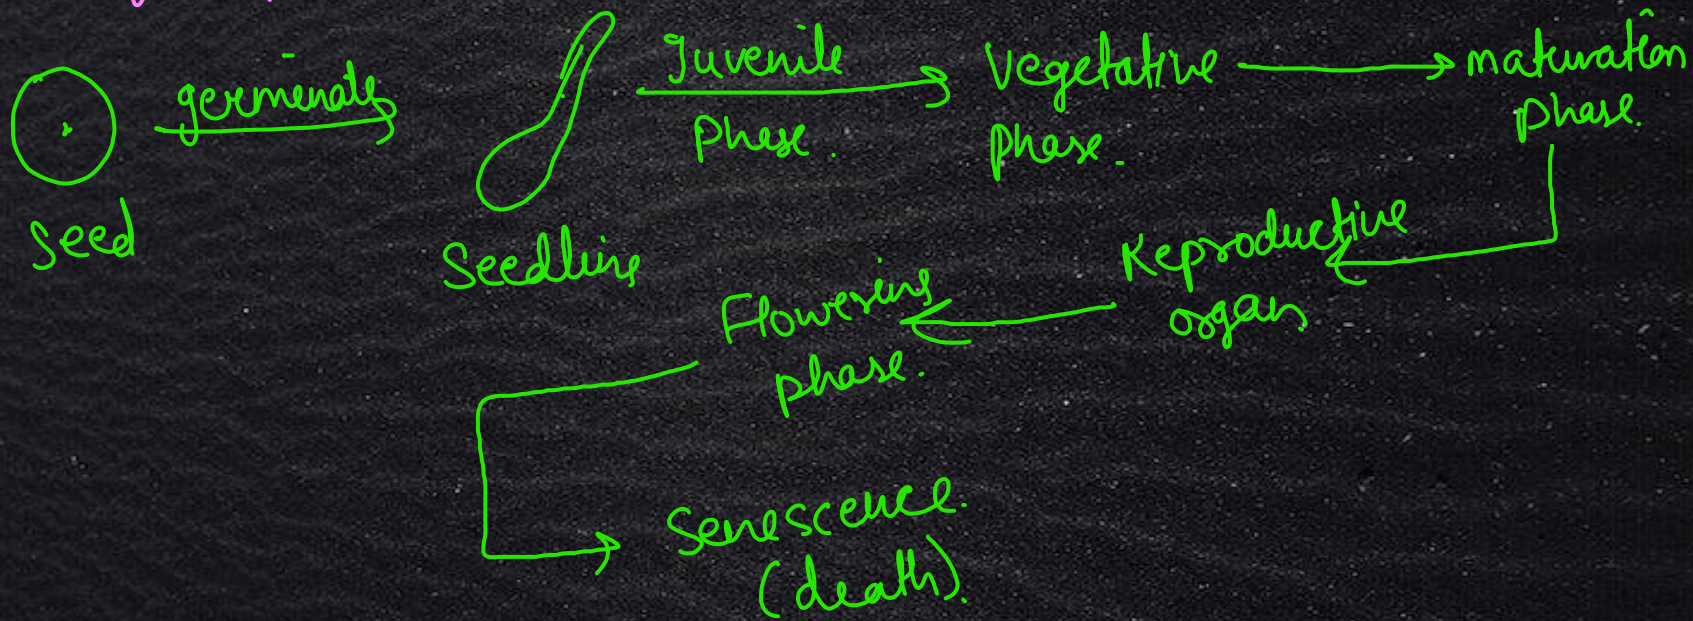 germinate
Seed
Seedling
Juvenile
Phase.
Vegetative
Phase.
maturation
phase.
Reproductive
organ
Flowering
phase.
Senescence.
(death).